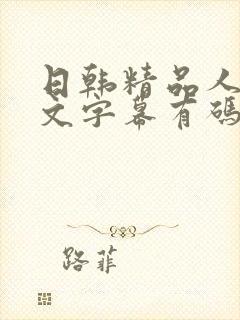 日韩精品人
文字幕有码
路菲